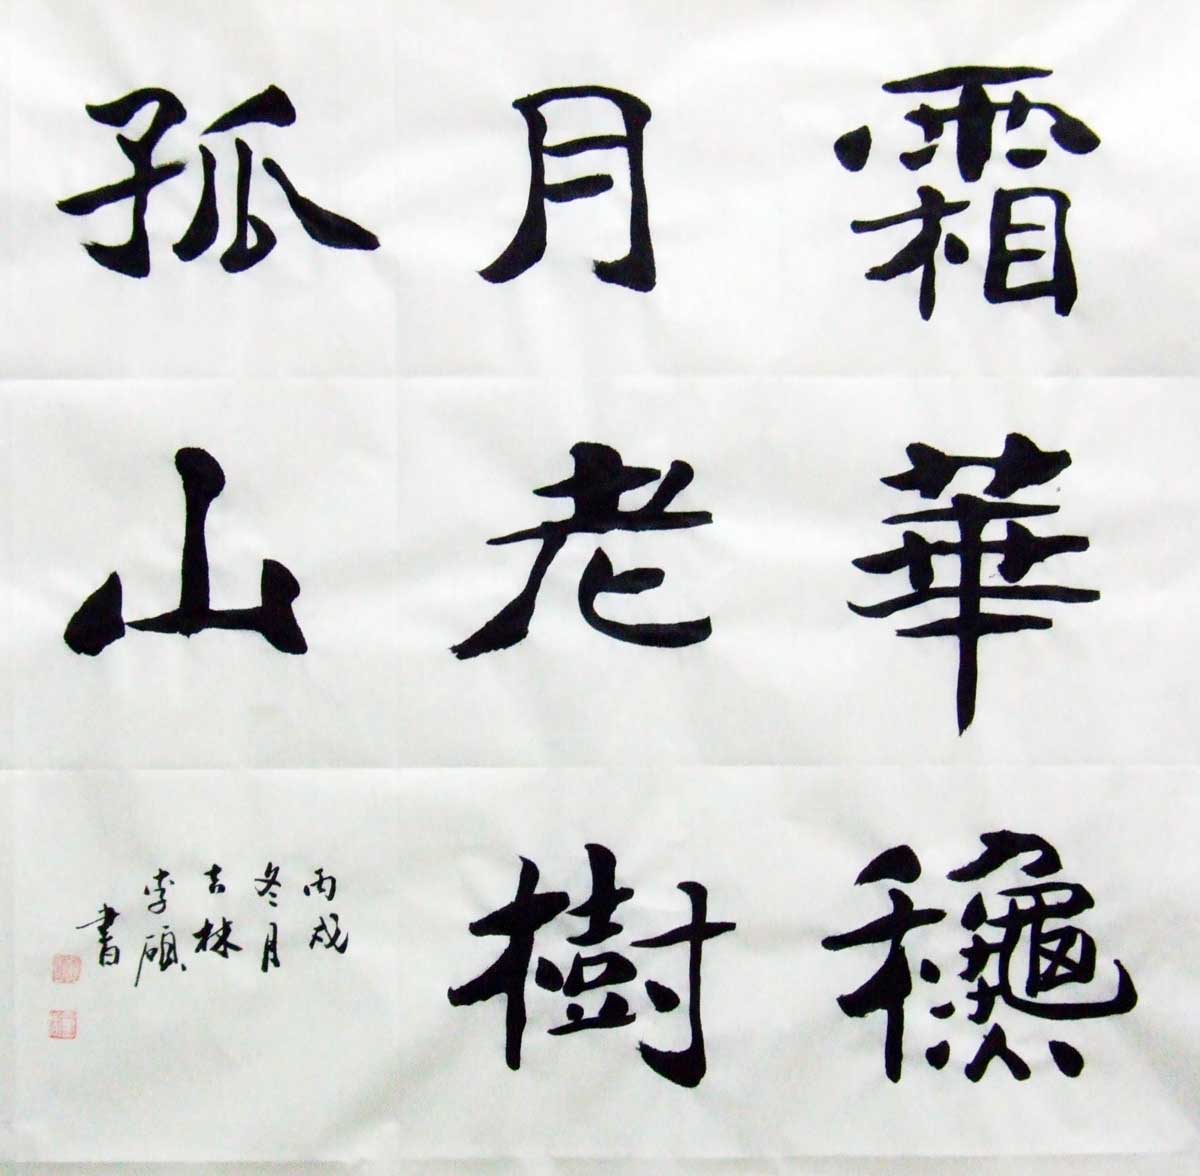 霜華龝
月老樹
孤山
丙戌
冬月
吉林
李碩
書